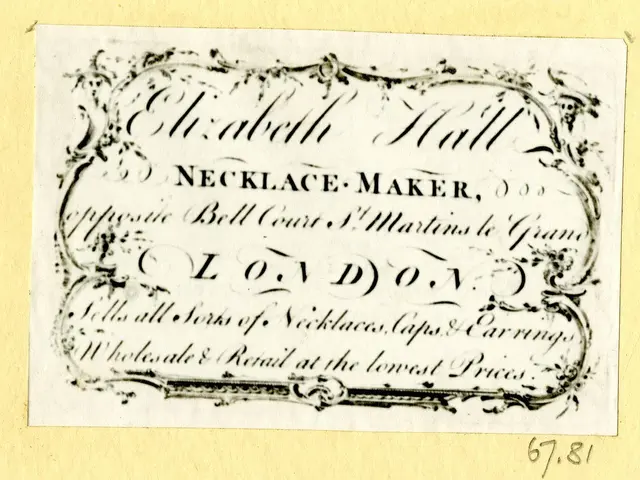 Elizabeth Hall
NECKLACE·MAKER,
opposite Bell Court St. Martins le Grand
LONDON.
Sells all Sorts of Necklaces, Caps, & Earrings
Wholesale & Retail at the lowest Prices.
67.81